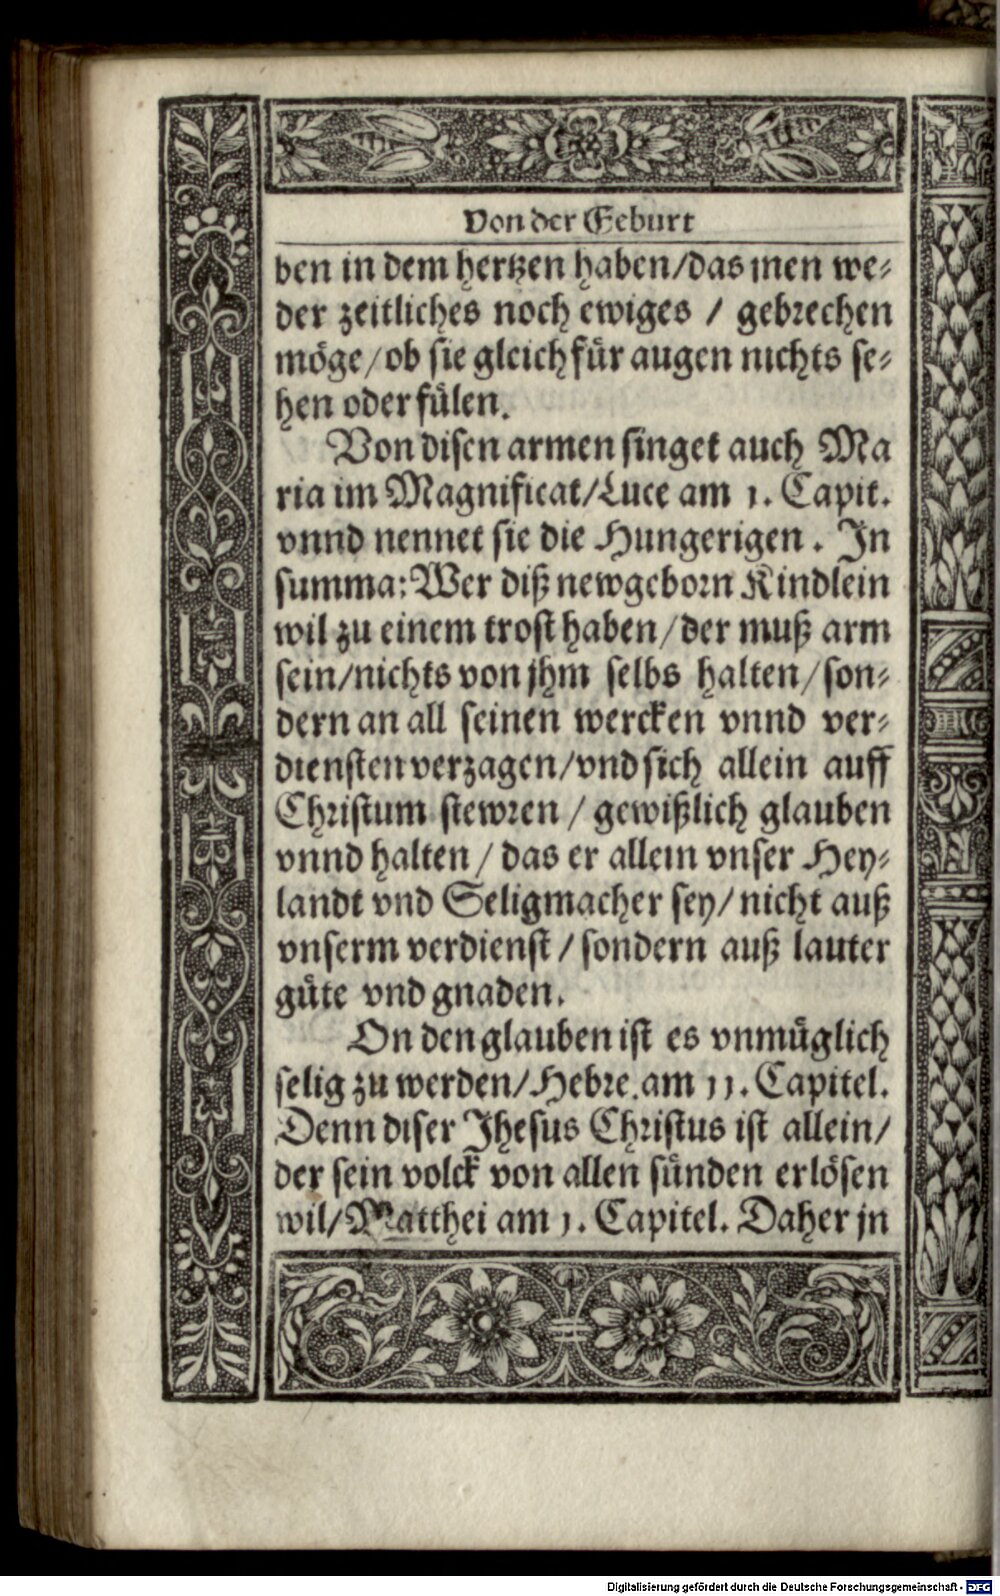 Von der Geburt
ben in dem hertzen haben/das jnen we⸗
der zeitliches noch ewiges / gebrechen
möge/ob sie gleich für augen nichts se⸗
hen oder fülen.
Von disen armen singet auch Ma
ria im Magnificat/Luce am 1. Capit.
vnnd nennet sie die Hungerigen. In
summa: Wer diß newgeborn Kindlein
wil zu einem trost haben/der muß arm
sein/nichts von jhm selbs halten/son⸗
dern an all seinen wercken vnnd ver⸗
diensten verzagen/vnd sich allein auff
Christum stewren / gewißlich glauben
vnnd halten / das er allein vnser Hey⸗
landt vnd Seligmacher sey/nicht auß
vnserm verdienst / sondern auß lauter
güte vnd gnaden.
On den glauben ist es vnmüglich
selig zu werden/Hebre. am 11. Capitel.
Denn diser Jhesus Christus ist allein/
der sein volck von allen sünden erlösen
wil/Matthei am 1. Capitel. Daher jn
Digitalisierung gefördert durch die Deutsche Forschungsgemeinschaft - DFG